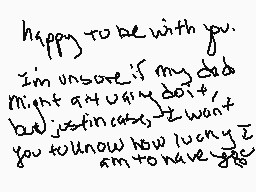 happy to be with you.
I'm unsure if my dad
might anything do it,
but just in case, I want
you to know how lucky I
am to have you